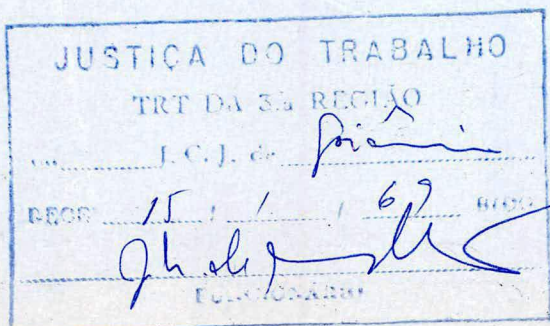 JUSTIÇA DO TRABALHO
TRT DA 3.ª REGIÃO
J. C. J. de Goiânia
15 / 1 / 69
FUNCIONÁRIO